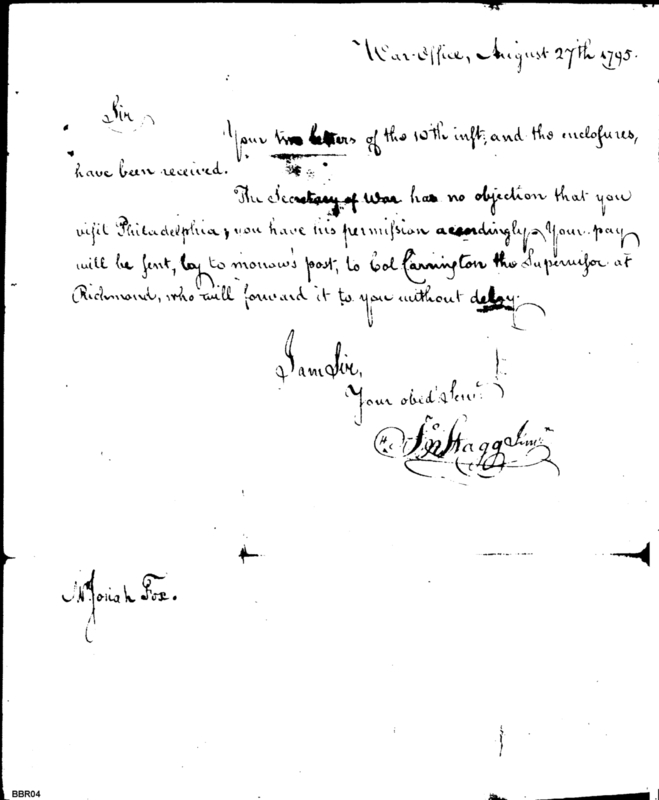 War Office, August 27th 1795.
Sir
Your two letters of the 10th inst; and the enclosures,
have been received.
The Secretary of War has no objection that you
visit Philadelphia, you have his permission accordingly. Your pay
will be sent, by to morrow's post, to Col Carrington the Supervisor at
Richmond, who will forward it to you without delay.
I am Sir,
Your obed.t Serv.t
Jno Stagg Junr
Mr Josiah Fox.
BBR04